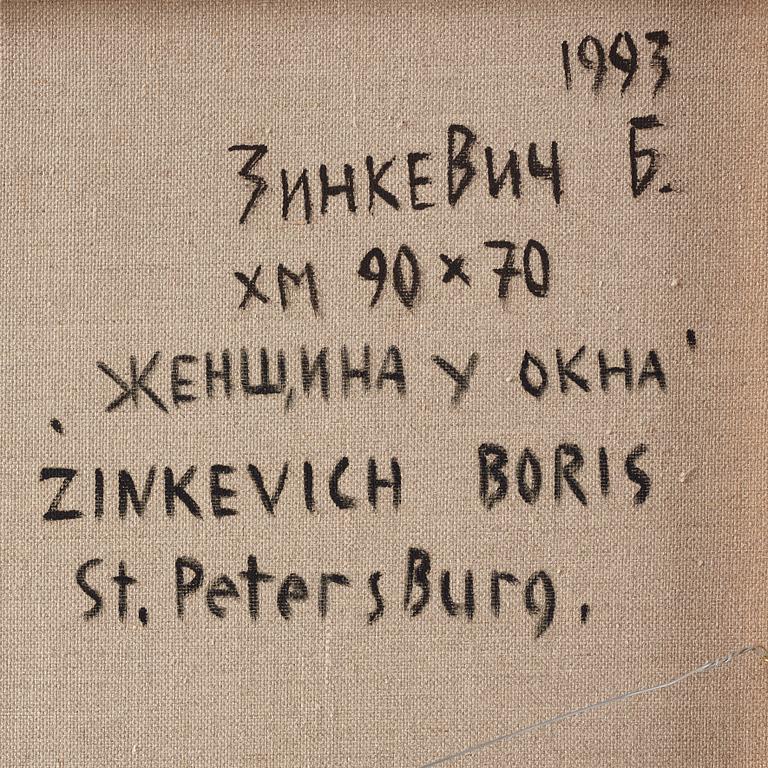 1993
ЗИНКЕВИЧ Б.
ХМ 90 x 70
'ЖЕНЩИНА У ОКНА'
ZINKEVICH BORIS
St. PetersBurg.